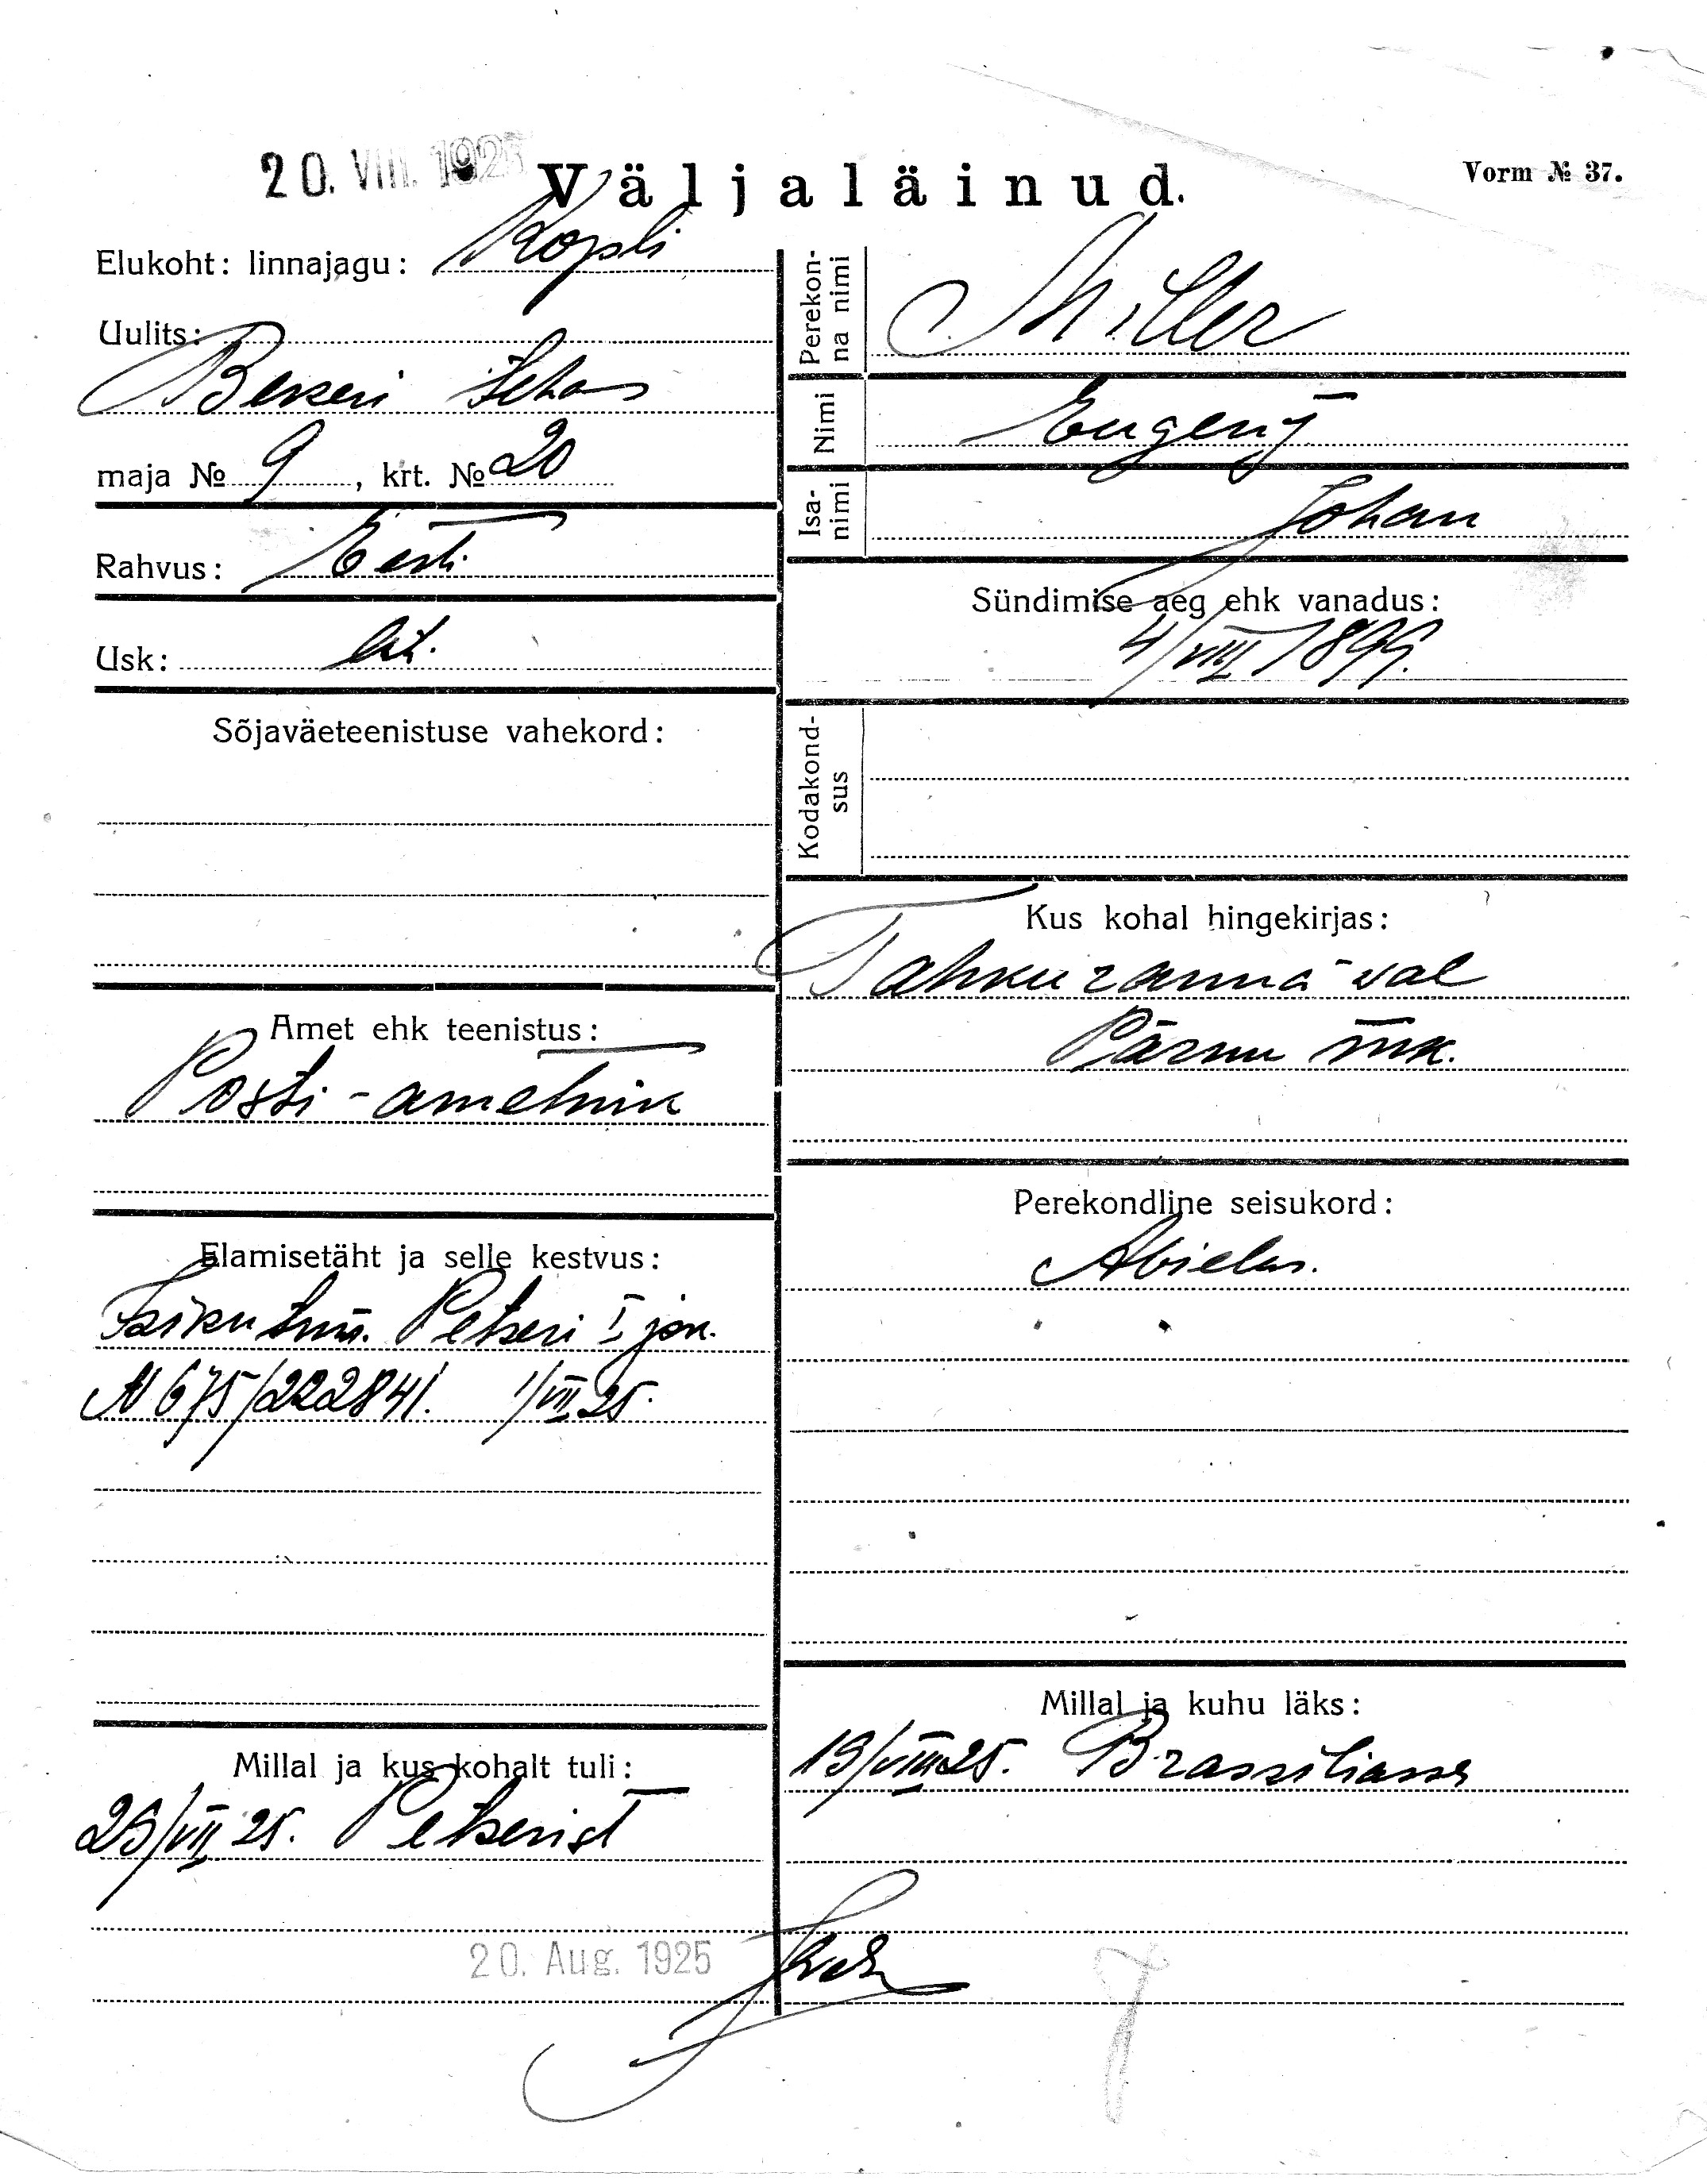 20. VIII. 1925
Väljaläinud.
Vorm № 37.
Elukoht: linnajagu: Kopli
Uulits:
Bekeri tehas
maja № 9, krt. № 20
Rahvus: Eesti
Usk: lut.
Sõjaväeteenistuse vahekord:
Amet ehk teenistus:
Posti-ametnik
Elamisetäht ja selle kestvus:
Isiku tun. Petseri I jsk.
N 675/222841. 1/VII 25.
Millal ja kus kohalt tuli:
26/VII 25. Petserist
20. Aug. 1925
Perekonna nimi
Miller
Nimi
Eugenij
Isanimi
Johan
Sündimise aeg ehk vanadus:
4/VIII 1899.
Kodakondsus
Kus kohal hingekirjas:
Tahkuranna val
Pärnu mk.
Perekondline seisukord:
Abielus.
Millal ja kuhu läks:
19/VIII 25. Brassiliasse